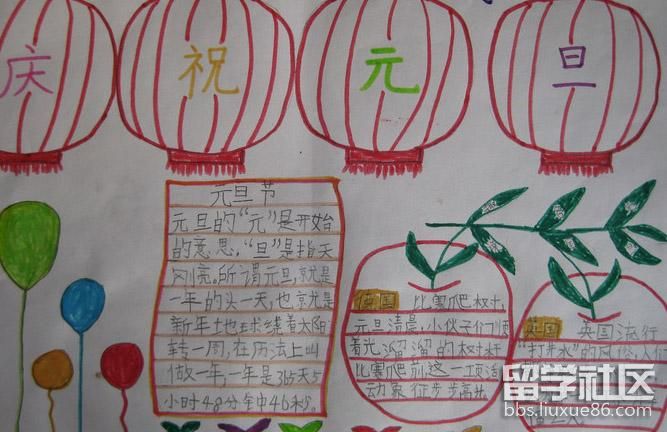 庆祝元旦
元旦节
元旦的“元”是开始
的意思，“旦”是指天
刚亮。所谓元旦，就是
一年的头一天，也就是
新年地球绕着太阳
转一周，在历法上叫
做一年，一年是365天5
小时48分钟46秒。
德国 比赛爬树，
元旦清晨，小伙子们顺
着光溜溜的树杆
比赛爬前，这一项活
动象征步步高升
英国 英国流行
“打井水”的风俗，人们
留学社区
bbs.liuxue86.com